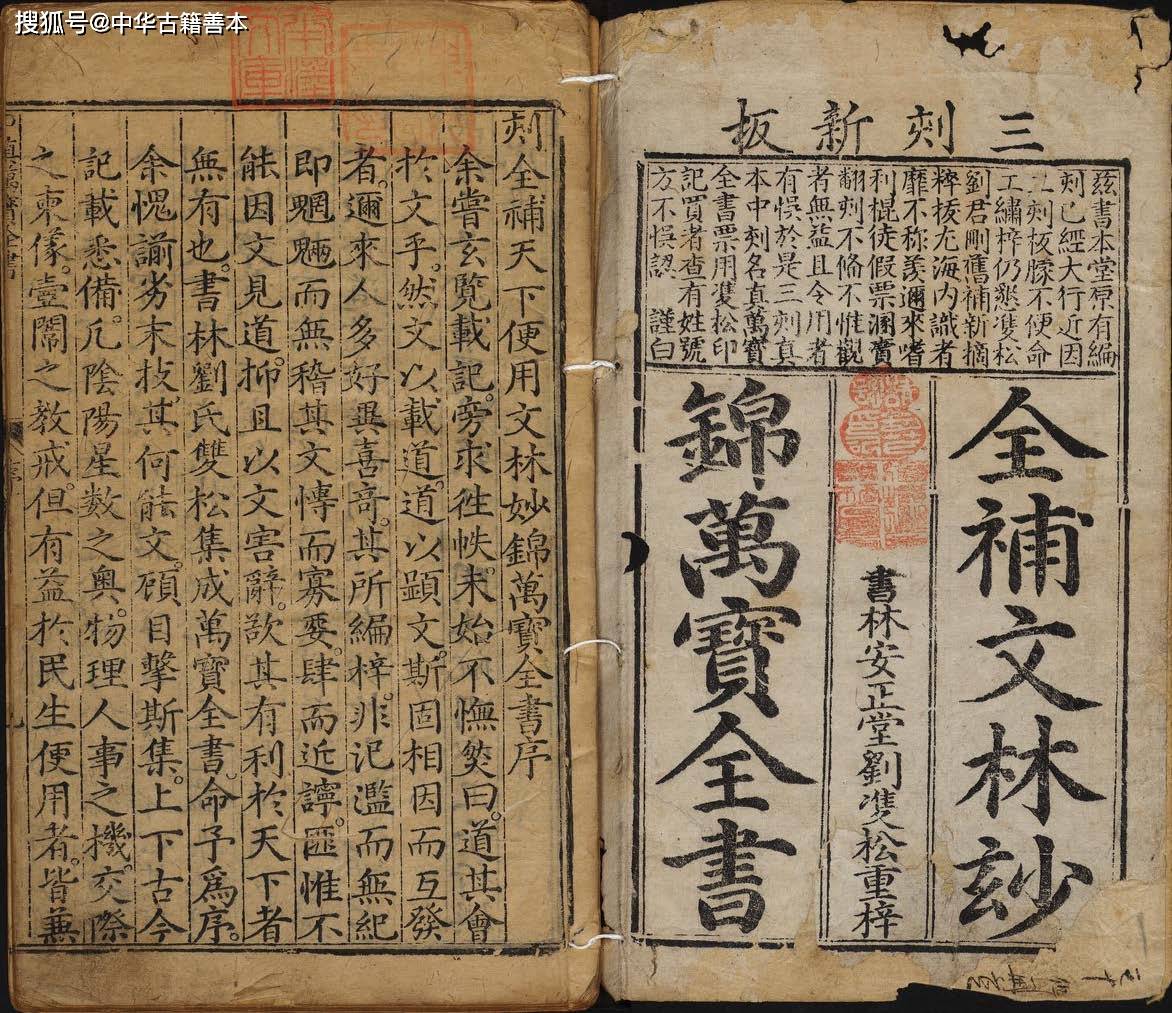 搜狐号@中华古籍善本
三刻新板
茲書本堂原有編
刻已經大行近因
二刻板朦不便命
工繡梓仍懇雙松
劉君剛舊補新摘
粹拔尤海內識者
靡不称羨邇來嗜
利棍徒假票溷賣
翻刻不俻不惟觀
者無益且令用者
有悞於是三刻真
本中刻名真萬寶
全書票用雙松印
記買者查有姓號
方不悞認 謹白
全補文林玅
書林安正堂劉雙松重梓
錦萬寶全書
刻全補天下便用文林妙錦萬寶全書序
余嘗玄覽載記。旁求徃帙。未始不憮然曰。道其會
於文乎。然文以載道。道以顕文。斯固相因而互發
者。邇來人多好異喜竒。其所編梓。非汜濫而無紀
即魍魎而無稽其文慱而寡要。肆而近譁。匪惟不
能因文見道。抑且以文害辭。欲其有利於天下者
無有也。書林劉氏雙松集成萬寶全書。命予爲序。
余愧謭劣末技。其何能文。頋目擊斯集。上下古今
記載悉備。凢陰陽星数之奥。物理人事之機。交際
之柬。壼閫之教戒。但有益於民生便用者。皆兼